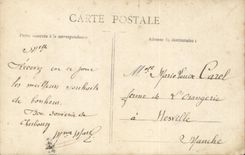 CARTE POSTALE
Partie réservée à la correspondance
Adresse du destinataire
Mlle
Recevez en ce jour
les meilleurs souhaits
de bonheur.
Bon souvenir de
Cherbourg
Mlle Marie Louise Carel
ferme de l'Orangerie
à Nesville
Manche